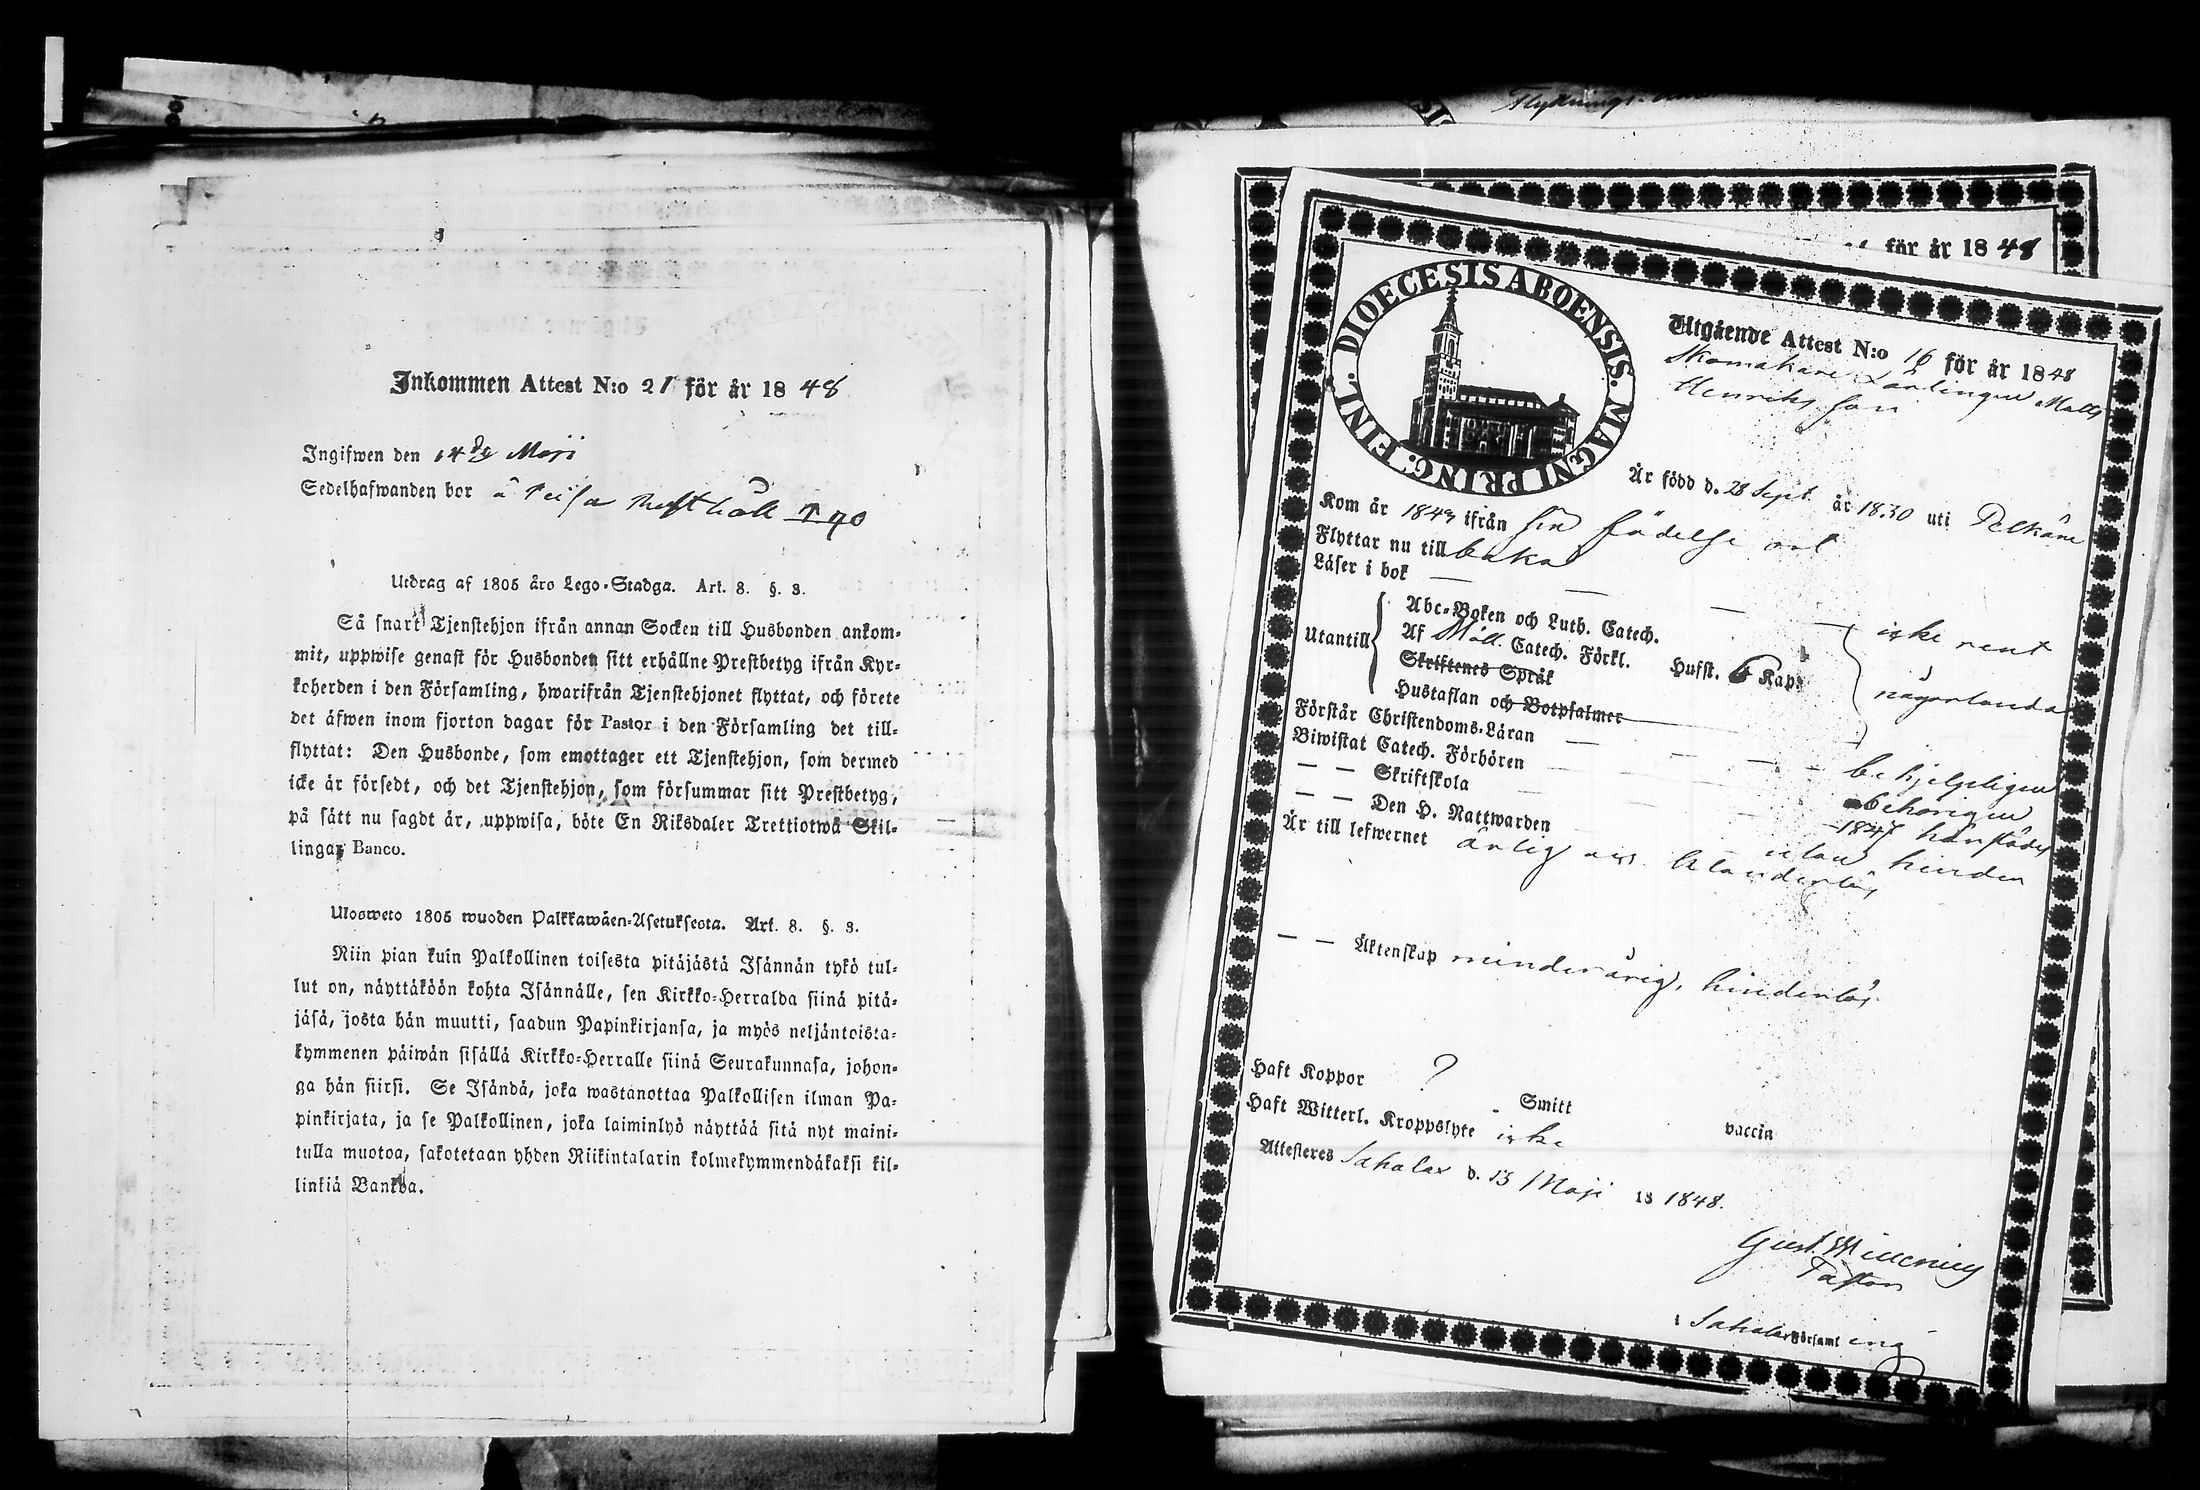 Inkommen Attest N:o 21 för år 1848
Ingifwen den 14de Maji
Sedelhafwanden bor å
Utdrag af 1805 års Lego-Stadga. Art. 8. §. 3.
Så snart Tjenstehjon ifrån annan Socken till Husbonden ankom-
mit, uppwise genast för Husbonden sitt erhållne Prestbetyg ifrån Kyr-
koherden i den Församling, hwarifrån Tjenstehjonet flyttat, och förete
det äfwen inom fjorton dagar för Pastor i den Församling det till-
flyttat: Den Husbonde, som emottager ett Tjenstehjon, som dermed
icke är försedt, och det Tjenstehjon, som försummar sitt Prestbetyg,
på sätt nu sagdt är, uppwisa, böte En Riksdaler Trettiotwå Skil-
lingar Banco.
Ulosweto 1805 wuoden Palkkawäen-Asetuksesta. Art. 8. §. 3.
Niin pian kuin Palkollinen toisesta pitäjästä Isännän tykö tul-
lut on, näyttäköön kohta Isännälle, sen Kirkko-Herralda siinä pitä-
jäsä, josta hän muutti, saadun Papinkirjansa, ja myös neljäntoista-
kymmenen päiwän sisällä Kirkko-Herralle siinä Seurakunnasa, johon-
ga hän siirsi. Se Isändä, joka wastanottaa Palkollisen ilman Pa-
pinkirjata, ja se Palkollinen, joka laiminlyö näyttää sitä nyt maini-
tulla muotoa, sakotetaan yhden Riikintalarin kolmekymmendäkaksi kil-
linkiä Bankoa.
för år 1848
DIOECESIS ABOENSIS. MAGNI PRING. FINL.
Utgående Attest N:o 16 för år 1848
Skomakare Lärlingen Matts
Henriksson
Är född d. 28 Sept. år 1830 uti Pelkäne
Kom år 1843 ifrån sin födelse ort
Flyttar nu till baka
Läser i bok
Abc-Boken och Luth. Catech.
Utantill Af Möll. Catech. Förkl. icke rent
Skriftenes Språk Husst. 6 Kap.
Hustaflan och Botpsalmer någorlunda
Förstår Christendoms-Läran behjelpeligen
Biwistat Catech. Förhören behörigen
— — Skriftskola 1847
— — Den H. Nattwarden utan hinder
Är till lefwernet ärlig och klanderlös
— — Äktenskap minderårig, hinderlös
Haft Koppor ? Smitt vaccin
Haft Witterl. Kroppslyte icke
Attesteres Sahalax d. 13 Maji 18 1848.
Gust.
Pastor
i Sahalax Församling